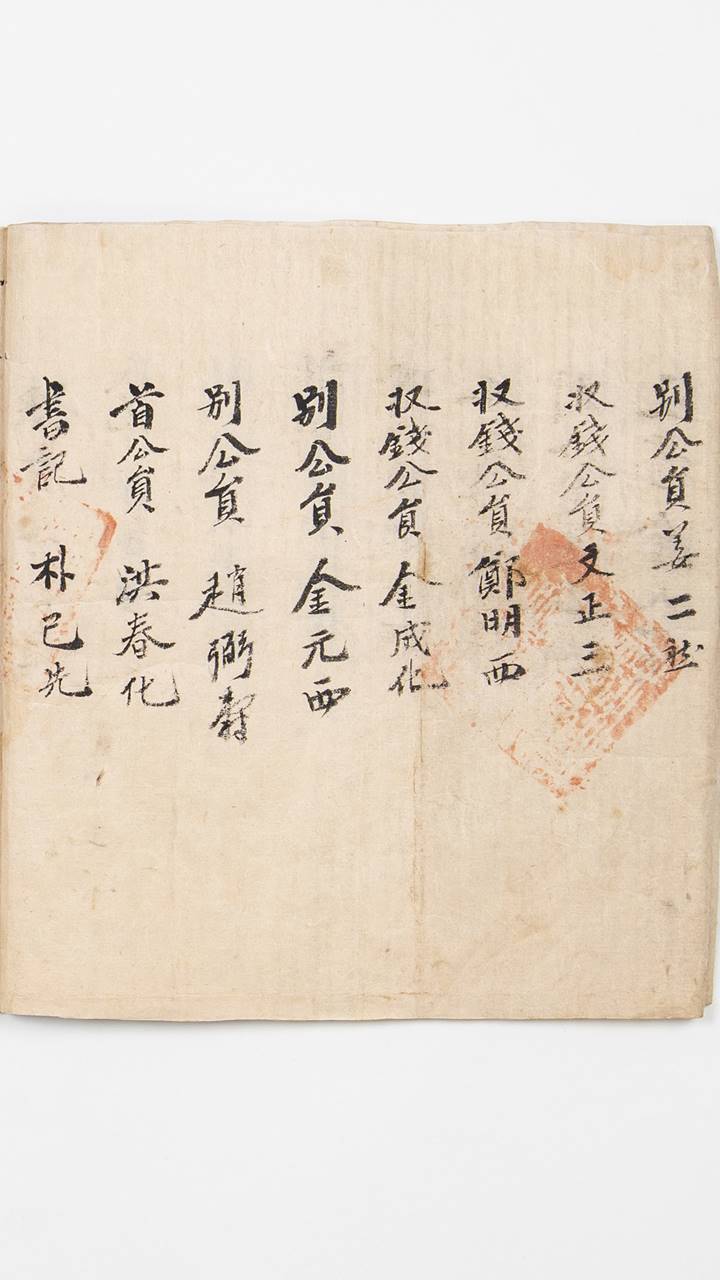 別公員 姜二
収錢公員 文正三
収錢公員 鄭明西
収錢公員 金成化
別公員 金元西
別公員 趙弼
首公員 洪春化
書記 朴已先